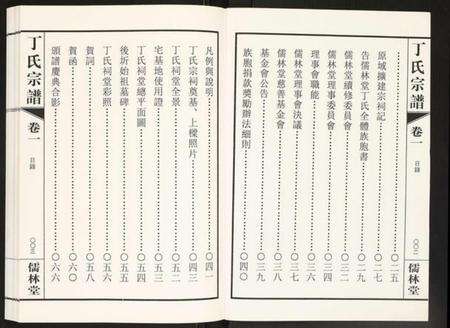 丁氏宗譜
卷一
目錄
〇〇二
儒林堂
……〇二五
原城擴建宗祠記……〇二七
告儒林堂丁氏全體族胞書……〇二九
儒林堂續修委員會……〇三二
儒林堂理事委員會……〇三四
理事會職能……〇三六
儒林堂理事會決議……〇三七
儒林堂慈善基金會……〇三八
基金會公告……〇三九
族胞捐款獎勵辦法細則……〇四〇
凡例與說明……〇四一
丁氏宗祠奠基、上樑照片……〇四三
丁氏祠堂全景……〇五二
宅基地使用證……〇五三
後圻始祖墓碑……〇五四
丁氏祠堂總平面圖……〇五五
丁氏祠堂彩照……〇五五
賀詞……〇五八
賀函……〇六〇
頌譜慶典合影……〇六六
丁氏宗譜
卷一
目錄
〇〇三
儒林堂